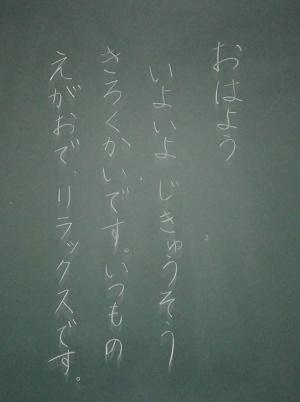 おはよう
いよいよ じきゅうそう
きろくかいです。いつもの
えがおで、リラックスです。